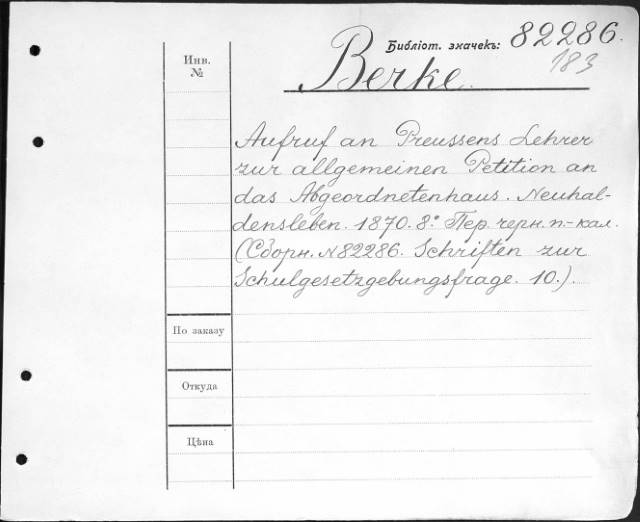 Библіот. значекъ: 82286.
183
Инв.
№
Berke.
Aufruf an Preussens Lehrer
zur allgemeinen Petition an
das Abgeordnetenhaus. Neuhal-
densleben. 1870. 8.° Пер. черн. п.-кал.
(Сборн. N 82286. Schriften zur
Schulgesetzgebungsfrage. 10.).
По заказу
Откуда
Цѣна